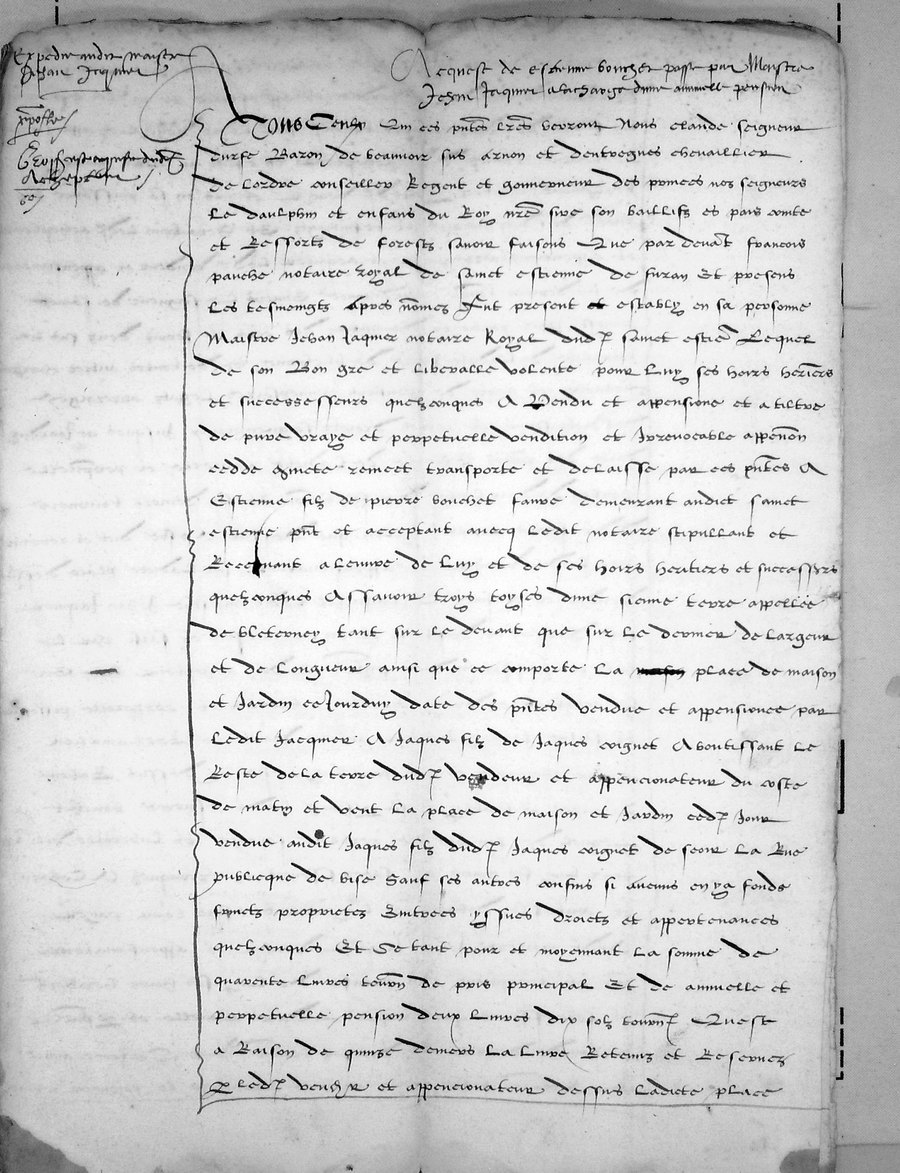 Expedie audit maistre
Jehan Jacquier
Acqueste de estienne bouchet passe par Maistre
Jehan Jaquier a la charge dune annuelle pension
A Tous Ceulx Qui ces pntes lres verront Nous claude seigneur
durfe Baron de beauvoir sus arnon et dentragues chevaillier
de lordre conseiller Regent et gouverneur des princes noz seigneurs
Le daulphin et enfans du Roy nre sire son baillifz es pais conte
et Ressortz de forestz savoir faisons Que par devat francois
panche notaire royal de sainct estienne de furan Et presens
Les tesmeingtz apres nomez Fut present et estably en sa personne
Maistre Jehan Jaquier notaire Royal dud sainct estie Lequel
de son Bon gre et liberalle volente pour Luy ses hoirs heriers
et successesseurs quelzconques A Vendu et appensione et a tiltre
de pure vraye et perpetuelle vendition et Irrevocable appenon
cedde quicte remect transporte et delaisse par ces pntes A
Estienne filz de pierre bouchet faure demeurant audict sainct
estienne pnt et acceptant avecq ledit notaire stipullant et
Recevant a leuvre de Luy et de ses hoirs heritiers et successrs
quelzconques Assavoir troys toyses dune sienne terre appellee
de bleterney tant sur le devant que sur le dernier de largeur
et de longueur ainsi que ce comporte La place de maison
et Jardin ce Jourduy date des pntes vendue et appensionee par
Ledit Jacquier A Jaques filz de Jaques coignet Aboutissant le
Reste de la terre dud vendeur et appencionateur du coste
de matin et vent La place de maison et Jardin ced Jour
vendue audit Jaques filz dud Jaques coignet de seoir La Rue
publicque de bise Sauf ses autres confins si aucuns en ya fondz
fruictz proprietez Entrees yssues droictz et appertenances
quelzconques Et Ce tant pour et moyennant La somme de
quarente Livres tourn de pris principal Et de annuelle et
perpetuelle pension deux Livres dix solz tourn Que est
a Raison de quinze deniers La Livre Retenuz et Reservez
p led vendr et appencionateur dessus Ladicte place